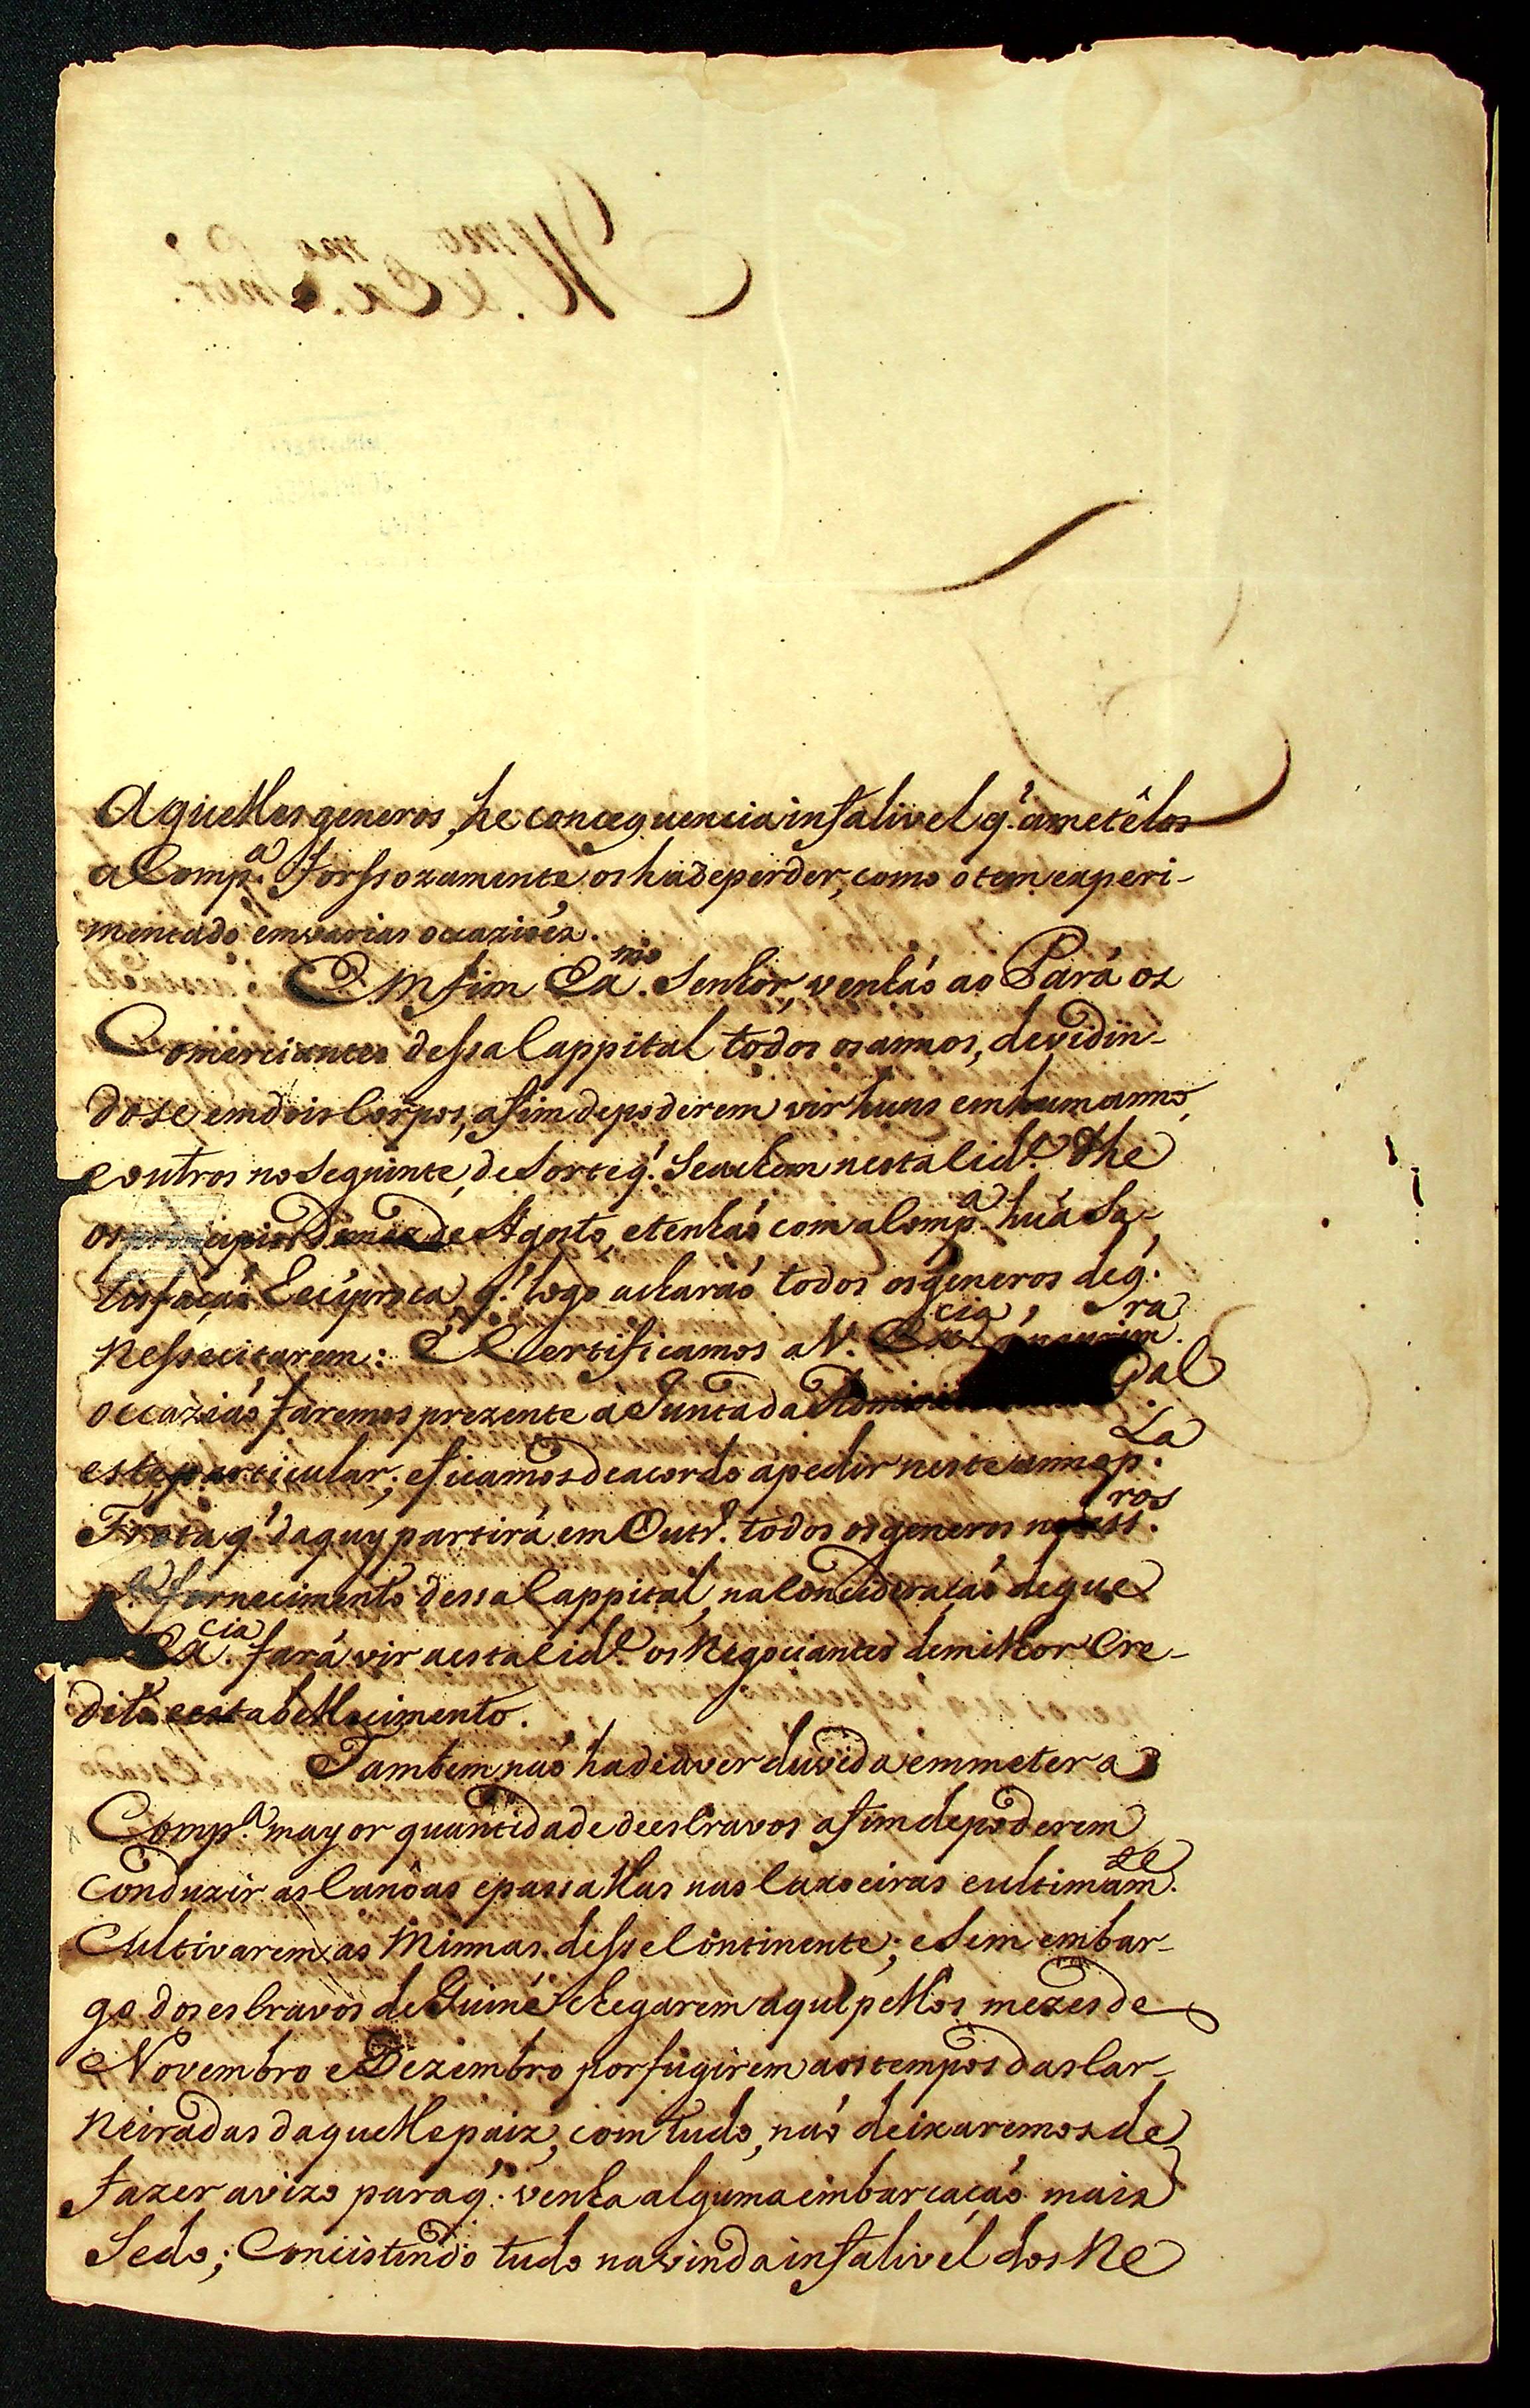 Aquelles generos, he concequencia infalivel q.' ametêlos
a Comp.ª forssozamente os hádeperder, como o tem experi-
mentado em varias occazioẽz.
Em fim Ex.mo Senhor, venhaó ao Pará oz
Comerciantes dessa Cappital todos os annos, devidin-
dose em dois Corpos, afim depoderem vir huns em hum anno,
e outros no Seguinte, de Sorte q.' Seachem nesta Cid.e Athe
os principios do mez de Agosto, etenhaó com a Comp.ª huá Sa-
tisfaçaó Reciproca, q.' logo acharaó todos os generos deq.'
Nessecitarem: E Certificamos a V. Ex.cia, q' na prim.ra
occaziaó faremos prezente a Junta da Admini Gal
este particular; eficamos de acordo apedir neste anno p.la
Frota q.' daquy partirá em Outr.o todos os generos necess.ros
fornecimento dessa Cappital, na Concideraçaó de que
Ex.cia fará vir a esta Cid.e os Negociantes de milhor Cre-
dito e estabellecimento.
Tambem naó hade aver duvida em meter a
Comp.ª mayor quantidade de esCravos afim depoderem
Conduzir as Canôas epassallas nas Caxoeiras eultimam.te
Cultivarem as Minnas desse Continente; eSem embar-
go dos esCravos de Guiné chegarem aqui pellos mezes de
Novembro e Dezembro por fugirem aos tempos das Car-
neiradas daquelle paiz, com tudo, naó deixaremos de
fazer avizo paraq.' venha alguma embarcaçaó maiz
Sedo; Concistindo tudo na vinda infalivel dos Ne